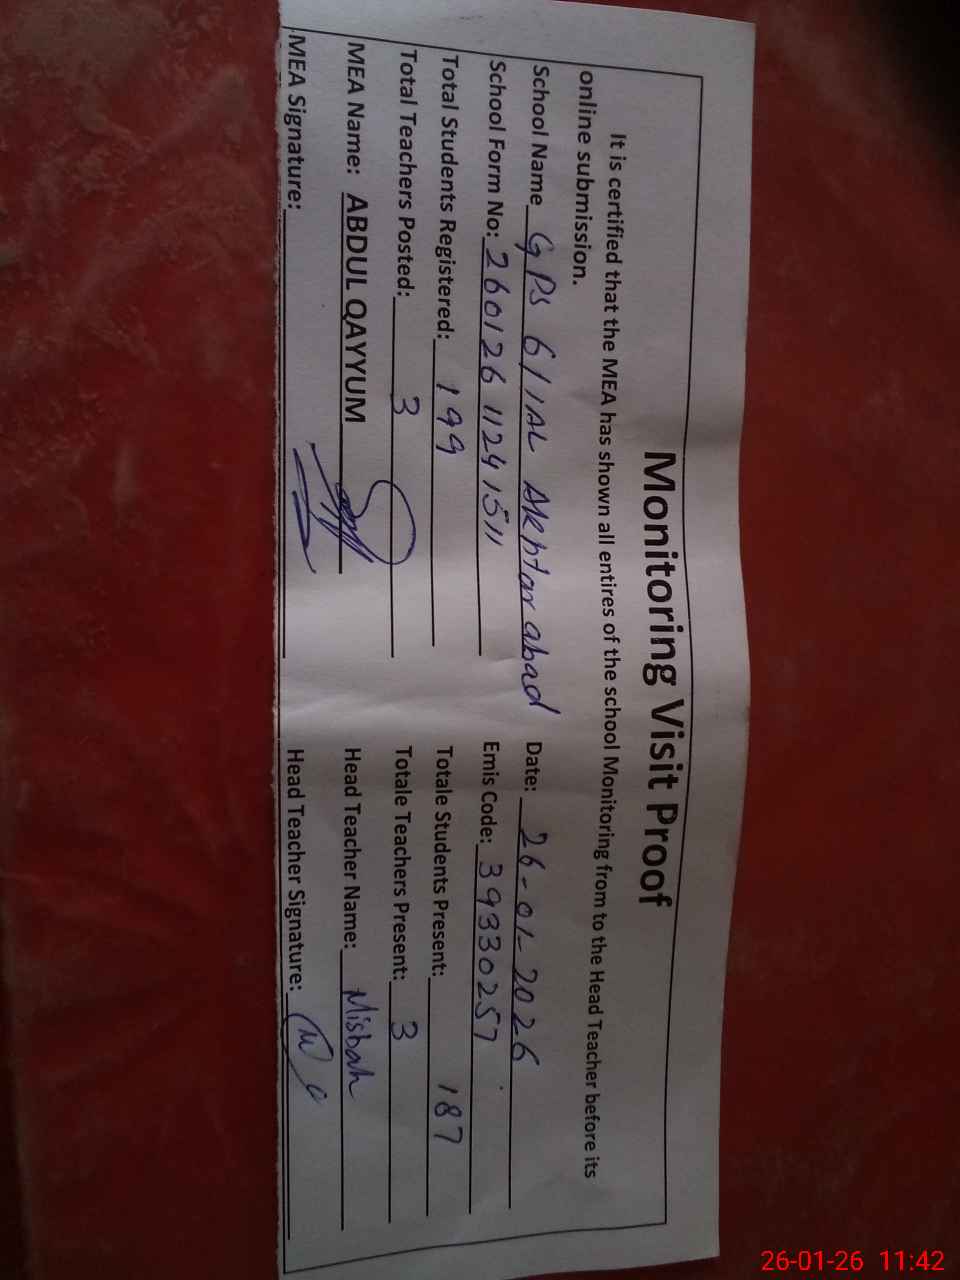 Monitoring Visit Proof
It is certified that the MEA has shown all entires of the school Monitoring from to the Head Teacher before its
online submission.
School Name GPS 6/1AL Akhtar abad Date: 26-01-2026
School Form No: 260126 1124 1511 Emis Code: 39330257
Total Students Registered: 199 Totale Students Present: 187
Total Teachers Posted: 3 Totale Teachers Present: 3
MEA Name: ABDUL QAYYUM Head Teacher Name: Misbah
MEA Signature: Head Teacher Signature:
26-01-26 11:42